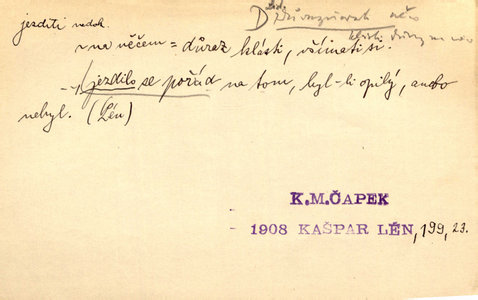 jezditi nedok. D zdůrazňovat něco
klásti důraz na něco
~ na něčem = důraz klásti, všímati si.
→ jezdilo se pořád na tom, byl-li opilý, anebo
nebyl. (Lén)
K.M.ČAPEK
1908 KAŠPAR LÉN, 199, 23.